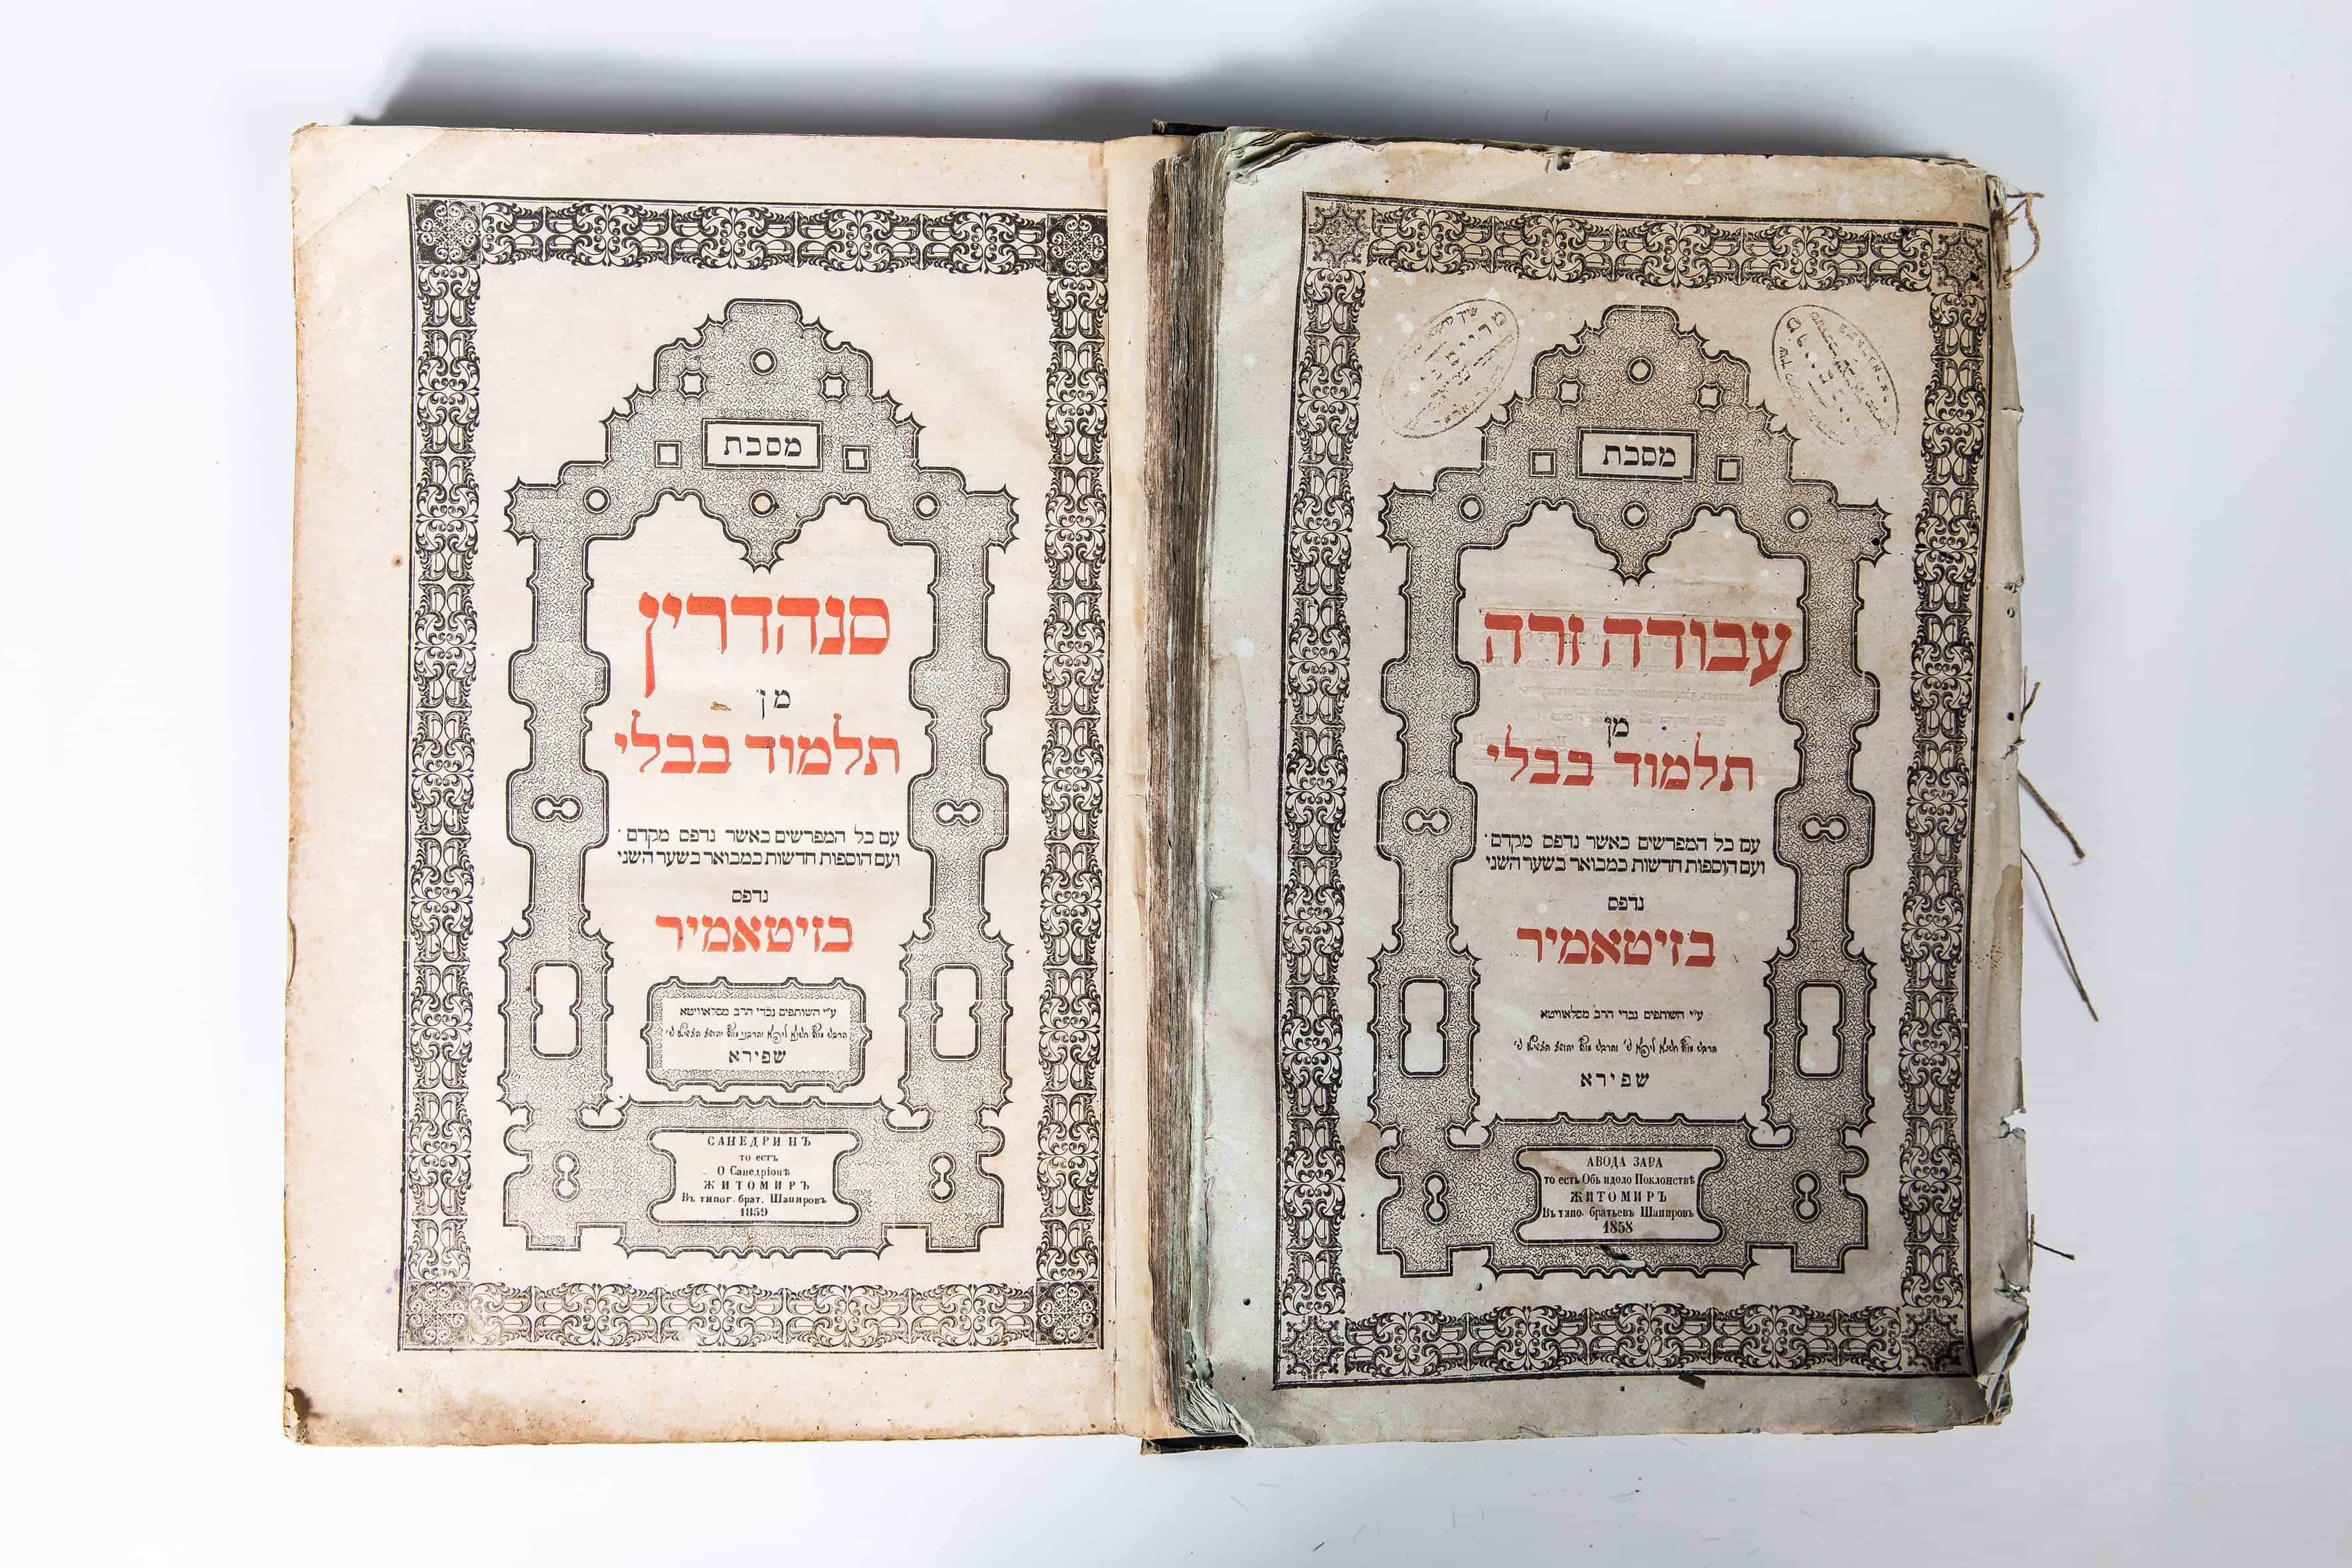 מסכת
סנהדרין
מן
תלמוד בבלי
עם כל המפרשים כאשר נדפס מקדם ·
ועם הוספות חדשות כמבואר בשער השני
נדפס
בזיטאמיר
ע״י השותפים נכדי הרב מסלאוויטא
שפירא
САНЕДРИНЪ
то есть
О Санедріонѣ
ЖИТОМИРЪ
Въ типог. брат. Шапировъ
1859
מסכת
עבודה זרה
מן
תלמוד בבלי
עם כל המפרשים כאשר נדפס מקדם ·
ועם הוספות חדשות כמבואר בשער השני
נדפס
בזיטאמיר
ע״י השותפים נכדי הרב מסלאוויטא
שפירא
АВОДА ЗАРА
то есть Объ идоло Поклонствѣ
ЖИТОМИРЪ
Въ типо. братьевъ Шапировъ
1858